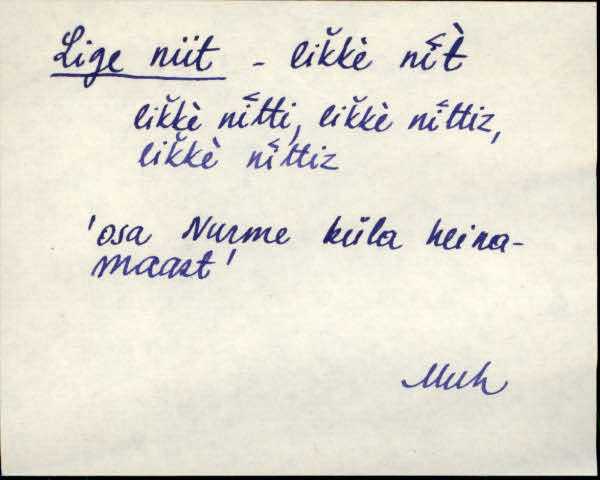 Lige niit - likkè nīt̀
likkè nītti, likkè nīttiz,
likkè nīttiz
'osa Nurme küla heina-
maast'
Muh